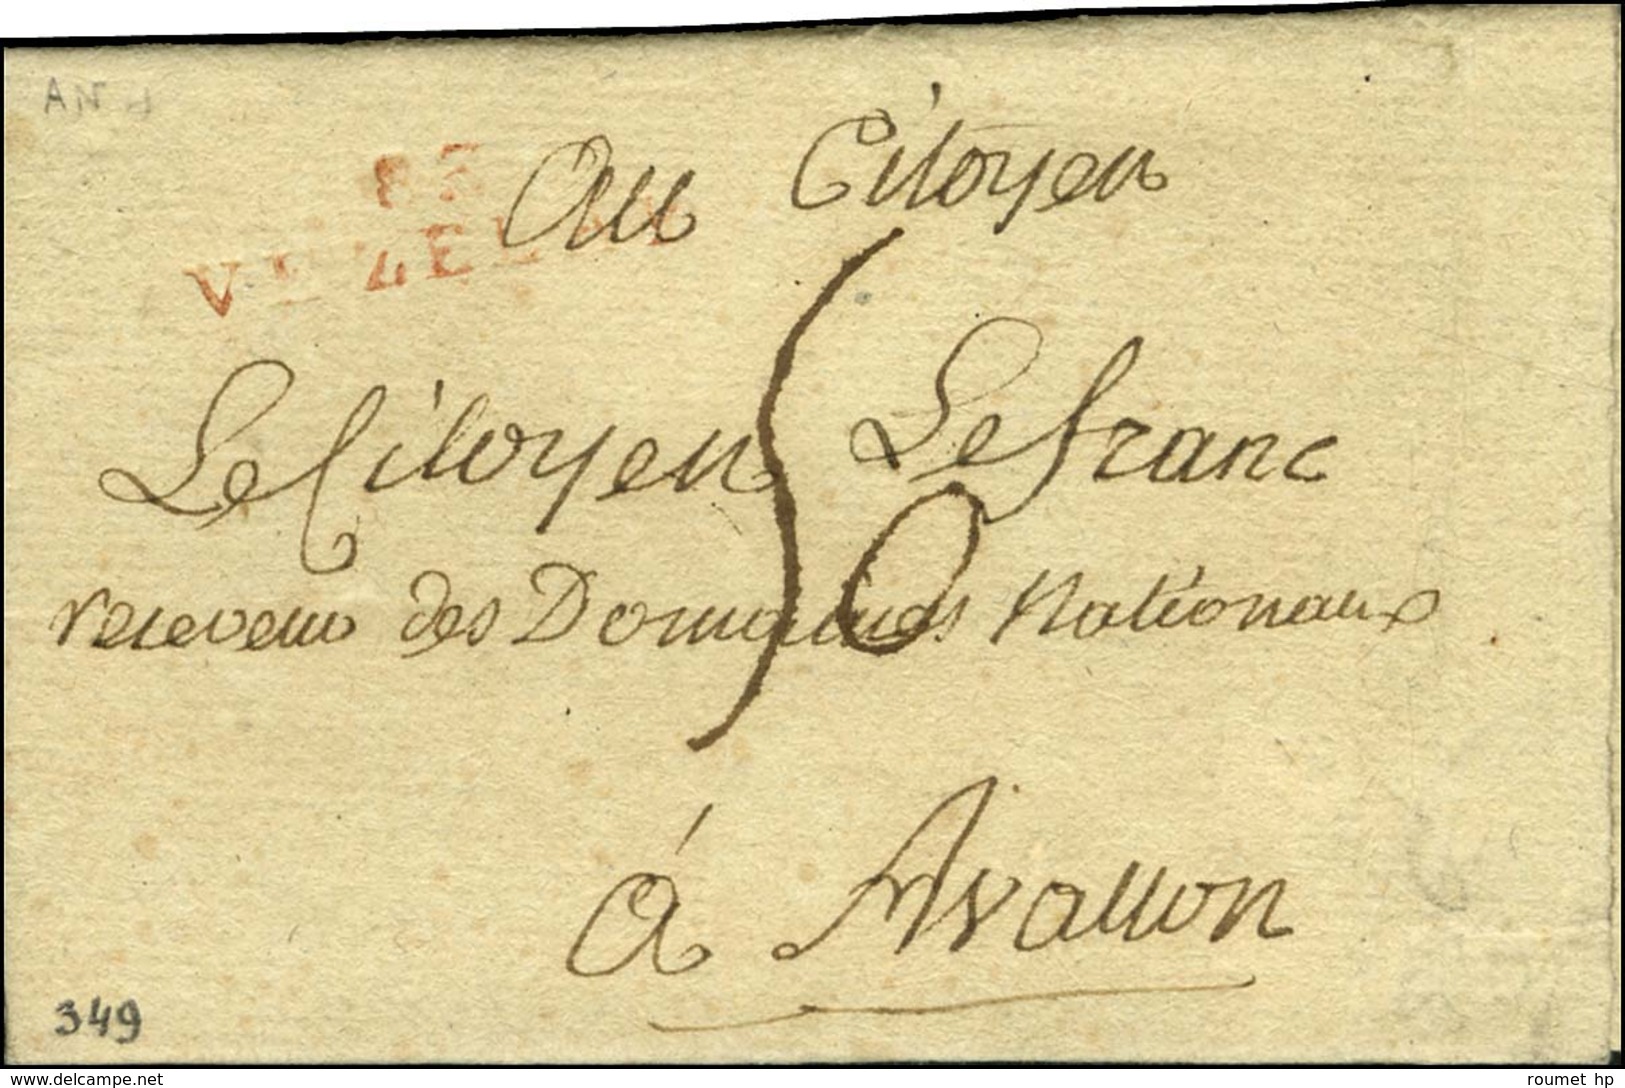 AN
83
Au Citoyen
Le Citoyen Lefranc
50
receveur des Domaines Nationaux
á Avallon
349
www.delcampe.net
roumet hp